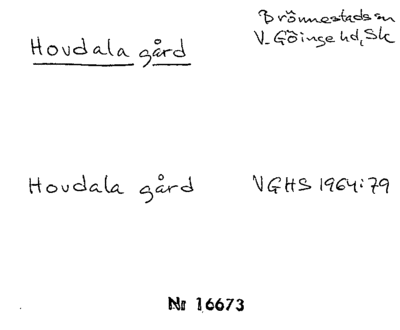 Hovdala gård
Brönnestads sn
V. Göinge hd, Sk
Hovdala gård
VGHS 1964:79
Nr 16673